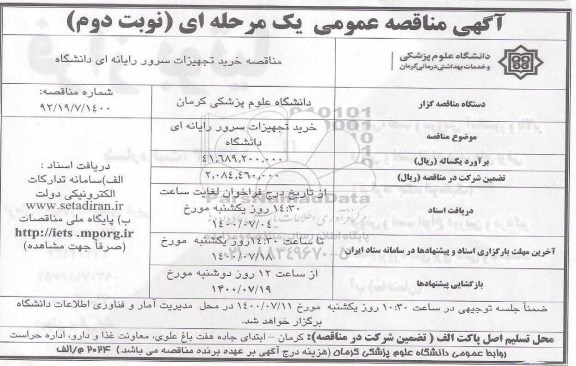 آگهی مناقصه عمومی یک مرحله ای (نوبت دوم)
دانشگاه علوم پزشکی
و خدمات بهداشتی درمانی کرمان
مناقصه خرید تجهیزات سرور رایانه ای دانشگاه
دستگاه مناقصه گزار
دانشگاه علوم پزشکی کرمان
شماره مناقصه:
۹۲/۱۹/۷/۱۴۰۰
موضوع مناقصه
خرید تجهیزات سرور رایانه ای
دانشگاه
برآورد یکساله (ریال)
۴۱,۶۸۹,۲۰۰,۰۰۰
تضمین شرکت در مناقصه (ریال)
۲,۰۸۴,۴۶۰,۰۰۰
دریافت اسناد
از تاریخ درج فراخوان لغایت ساعت
۱۴:۳۰ روز یکشنبه مورخ
۱۴۰۰/۰۷/۰۴
آخرین مهلت بارگزاری اسناد و پیشنهادها در سامانه ستاد ایران
تا ساعت ۱۴:۳۰ روز یکشنبه مورخ
۱۴۰۰/۰۷/۱۸
بازگشایی پیشنهادها
از ساعت ۱۲ روز دوشنبه مورخ
۱۴۰۰/۰۷/۱۹
دریافت اسناد :
الف)سامانه تدارکات
الکترونیکی دولت
www.setadiran.ir
ب) پایگاه ملی مناقصات
http://iets .mporg.ir
(صرفاً جهت مشاهده)
ضمناً جلسه توجیهی در ساعت ۱۰:۳۰ روز یکشنبه مورخ ۱۴۰۰/۰۷/۱۱ در محل مدیریت آمار و فناوری اطلاعات دانشگاه
برگزار خواهد شد.
محل تسلیم اصل پاکت الف ( تضمین شرکت در مناقصه): کرمان – ابتدای جاده هفت باغ علوی، معاونت غذا و دارو، اداره حراست
روابط عمومی دانشگاه علوم پزشکی کرمان (هزینه درج آگهی بر عهده برنده مناقصه می باشد) ۲۰۲۴ م/الف
ParsNamadData